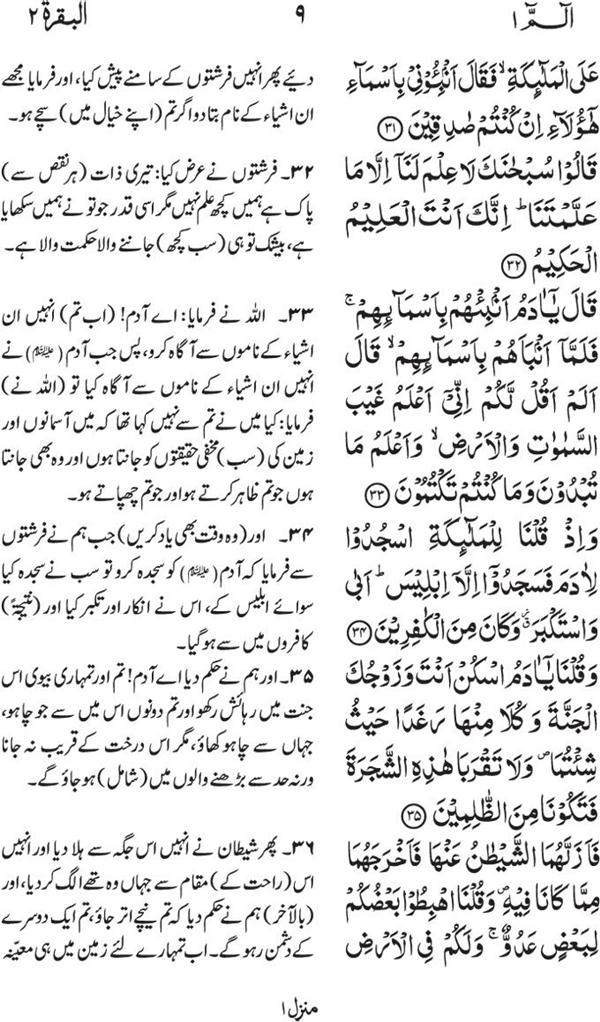 الٓمّٓ ۱
۹
البقرة ۲
عَلَى الْمَلٰٓئِكَةِ ۙ فَقَالَ اَنْۢبِـُٔوْنِیْ بِاَسْمَآءِ
هٰۤؤُلَآءِ اِنْ كُنْتُمْ صٰدِقِیْنَ ﴿۳۱﴾
قَالُوْا سُبْحٰنَكَ لَا عِلْمَ لَنَاۤ اِلَّا مَا
عَلَّمْتَنَا ؕ اِنَّكَ اَنْتَ الْعَلِیْمُ
الْحَكِیْمُ ﴿۳۲﴾
قَالَ یٰۤاٰدَمُ اَنْۢبِئْهُمْ بِاَسْمَآىِٕهِمْ ۚ
فَلَمَّاۤ اَنْۢبَاَهُمْ بِاَسْمَآىِٕهِمْ ۙ قَالَ
اَلَمْ اَقُلْ لَّكُمْ اِنِّیْۤ اَعْلَمُ غَیْبَ
السَّمٰوٰتِ وَالْاَرْضِ ۙ وَاَعْلَمُ مَا
تُبْدُوْنَ وَمَا كُنْتُمْ تَكْتُمُوْنَ ﴿۳۳﴾
وَاِذْ قُلْنَا لِلْمَلٰٓئِكَةِ اسْجُدُوْا
لِاٰدَمَ فَسَجَدُوْۤا اِلَّاۤ اِبْلِیْسَ ؕ اَبٰی
وَاسْتَكْبَرَ ۗ وَكَانَ مِنَ الْكٰفِرِیْنَ ﴿۳۴﴾
وَقُلْنَا یٰۤاٰدَمُ اسْكُنْ اَنْتَ وَزَوْجُكَ
الْجَنَّةَ وَكُلَا مِنْهَا رَغَدًا حَیْثُ
شِئْتُمَا ۪ وَلَا تَقْرَبَا هٰذِهِ الشَّجَرَةَ
فَتَكُوْنَا مِنَ الظّٰلِمِیْنَ ﴿۳۵﴾
فَاَزَلَّهُمَا الشَّیْطٰنُ عَنْهَا فَاَخْرَجَهُمَا
مِمَّا كَانَا فِیْهِ ۪ وَقُلْنَا اهْبِطُوْا بَعْضُكُمْ
لِبَعْضٍ عَدُوٌّ ۚ وَلَكُمْ فِی الْاَرْضِ
دئیے پھر انہیں فرشتوں کے سامنے پیش کیا، اور فرمایا مجھے
ان اشیاء کے نام بتا دو اگر تم (اپنے خیال میں) سچے ہو۔
۳۲۔ فرشتوں نے عرض کیا: تیری ذات (ہر نقص سے)
پاک ہے ہمیں کچھ علم نہیں مگر اسی قدر جو تو نے ہمیں سکھایا
ہے، بیشک تو ہی (سب کچھ) جاننے والا حکمت والا ہے۔
۳۳۔ اللہ نے فرمایا: اے آدم! (اب تم) انہیں ان
اشیاء کے ناموں سے آگاہ کرو، پس جب آدم (علیہ السلام) نے
انہیں ان اشیاء کے ناموں سے آگاہ کیا تو (اللہ نے)
فرمایا: کیا میں نے تم سے نہیں کہا تھا کہ میں آسمانوں اور
زمین کی (سب) مخفی حقیقتوں کو جانتا ہوں اور وہ بھی جانتا
ہوں جو تم ظاہر کرتے ہو اور جو تم چھپاتے ہو۔
۳۴۔ اور (وہ وقت بھی یاد کریں) جب ہم نے فرشتوں
سے فرمایا کہ آدم (علیہ السلام) کو سجدہ کرو تو سب نے سجدہ کیا
سوائے ابلیس کے، اس نے انکار اور تکبر کیا اور (نتیجۃً)
کافروں میں سے ہو گیا۔
۳۵۔ اور ہم نے حکم دیا اے آدم! تم اور تمہاری بیوی اس
جنت میں رہائش رکھو اور تم دونوں اس میں سے جو چاہو،
جہاں سے چاہو کھاؤ، مگر اس درخت کے قریب نہ جانا
ورنہ حد سے بڑھنے والوں میں (شامل) ہو جاؤ گے۔
۳۶۔ پھر شیطان نے انہیں اس جگہ سے ہلا دیا اور انہیں
اس (راحت کے) مقام سے جہاں وہ تھے الگ کر دیا، اور
(بالآخر) ہم نے حکم دیا کہ تم نیچے اتر جاؤ، تم ایک دوسرے
کے دشمن رہو گے۔ اب تمہارے لئے زمین میں ہی معیّنہ
منزل ۱